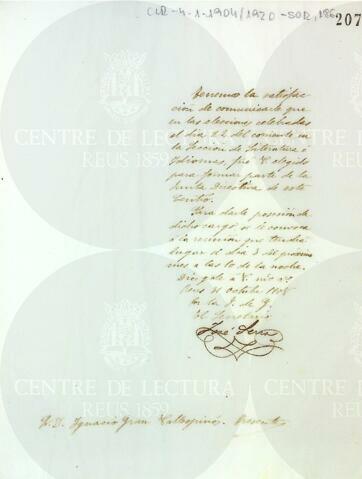 CLR-4-1-1904/1920-SOR,186
207
Tenemos la satisfac-
ción de comunicarle que
en las elecciones celebradas
el dia 22 del corriente en
la Sección de Literatura é
Idiomas, fué V. elegido
para formar parte de la
Junta Directiva de este
Centro.
Para darle posesión de
dicho cargo se le convoca
á la reunion que tendrá
lugar el dia 3 del próximo
mes á las 10 de la noche.
Dios gde á V. ms as
Reus 31 octubre 1908
Por la J. de G.
El Secretario
José Serra
S. D. Ignacio Gran Presente
CENTRE DE LECTURA
REUS 1859
CENTRE DE LECTURA
REUS 1859